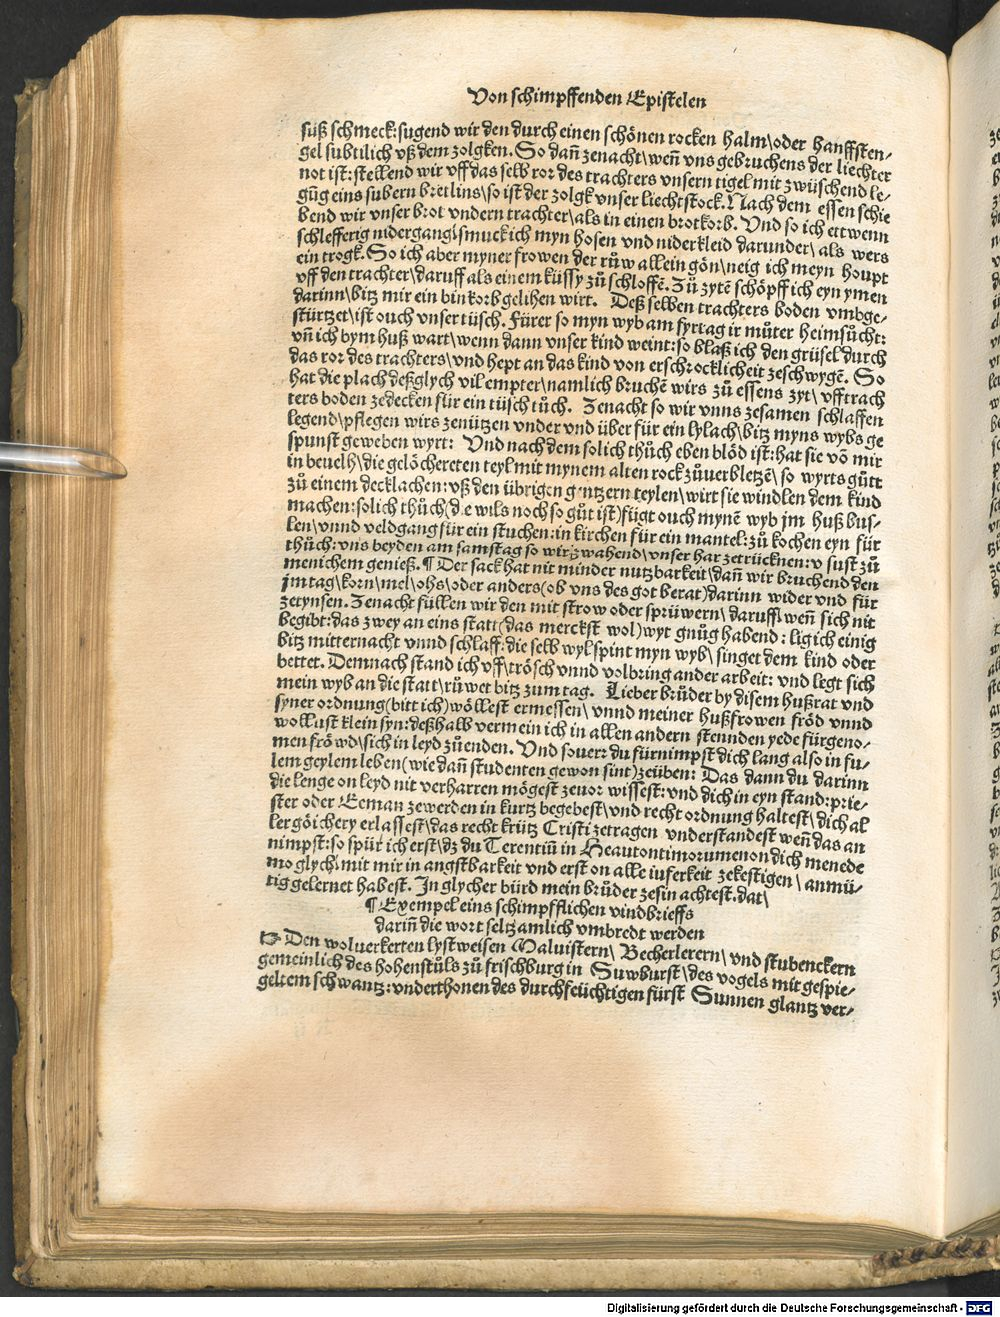 Von schimpffenden Epistelen
süß schmeck: sugend wir den durch einen schönen rocken halm\ oder hanffsten⸗
gel subtilich vß dem zolgken. So dañ zenacht\ weñ vns gebruchens der liechter
not ist: stellend wir vff das selb ror des trachters vnsern tigel mit zwüschend le⸗
gũg eins subern bretlins\ so ist der zolgk vnser liechtstock. Nach dem essen schie
bend wir vnser brot vndern trachter\ als in einen brotkorb. Vnd so ich ettwenn
schlefferig nidergang\ smuck ich myn hosen vnd niderkleid darunder\ als wers
ein trogk. So ich aber myner frowen der růw allein gön\ neig ich meyn houpt
vff den trachter\ daruff als einem küssy zů schloffẽ. Zů zytẽ schöpff ich eyn ymen
darinn\ bitz mir ein bin korb gelihen wirt. Deß selben trachters boden vmbge⸗
stürtzet\ ist ouch vnser tüsch. Fürer so myn wyb am fyrtag ir můter heimsůcht:
vñ ich bym huß wart\ wenn dann vnser kind weint: so blaß ich den grüsel durch
das ror des trachters\ vnd hept an das kind von erschrocklicheit zeschwygẽ. So
hat die plach deßglych vil empter\ namlich bruchẽ wirs zů essens zyt\ vff trach
ters boden zedecken für ein tüsch tůch. Zenacht so wir vnns zesamen schlaffen
legend\ pflegen wirs zenützen vnder vnd über für ein lylach\ bitz myns wybs ge
spunst geweben wyrt: Vnd nach dem solich thůch eben blöd ist: hat sie võ mir
in beuelh\ die gelöchereten teyl mit mynem alten rock zůuerbletzẽ\ so wyrts gůtt
zů einem decklachen: vß den übrigen gantzern teylen\ wirt sie windlen dem kind
machen: solich thůch (die wils noch so gůt ist) fügt ouch mynẽ wyb jm huß bus⸗
len\ vnnd veldgang für ein stuchen: in kirchen für ein mantel: zů kochen eyn für
thůch: vns beyden am samstag so wir zwahend\ vnser har zetrücknen: v sust zů
menichem genieß. ¶ Der sack hat nit minder nutzbarkeit\ dañ wir bruchend den
jm tag\ korn\ mel\ ohs\ oder anders (ob vns des got berat) darinn wider vnd für
zetynsen. Zenacht füllen wir den mit strow oder sprüwern\ daruff\ weñ sich nit
begibt: das zwey an eins statt (das merckst wol) wyt gnůg habend: lig ich einig
bitz mitternacht vnnd schlaff: die selb wyl spint myn wyb\ singet dem kind oder
bettet. Demnach stand ich vff\ trösch vnnd volbring ander arbeit: vnd legt sich
mein wyb an die statt\ růwet bitz zum tag. Lieber brůder by disem hußrat vnd
syner ordnung (bitt ich) wöllest ermessen\ vnnd meiner hußfrowen fröd vnnd
wollust klein syn: deßhalb vermein ich in allen andern stennden yede fürgeno⸗
men frówd\ sich in leyd zůenden. Vnd souerr du fürnimpst dich lang also in fu⸗
lem geylem leben (wie dañ studenten gewon sint) zeüben: Das dann du darinn
die lenge on leyd nit verharren mögest zeuor wissest: vnd dich in eyn stand: prie⸗
ster oder Eeman zewerden in kurtz begebest\ vnd recht ordnung haltest\ dich al
ler göichery erlassest\ das recht krütz Cristi zetragen vnderstandest weñ das an
nimpst: so spür ich erst\ dz du Terentiũ in Heautontimorumenon dich menede
mo glych\ mit mir in angstbarkeit vnd erst on alle iuferkeit zekestigen\ anmü⸗
tig gelernet habest. In glycher bürd mein brůder zesin achtest. dat\
¶ Exempel eins schimpfflichen vindbrieffs
dariñ die wort seltzamlich vmbredt werden
Den woluerkerten lystweisen Maluistern\ Becherlerern\ vnd stubenckern
gemeinlich des hohenstůls zů frischburg in Suwburst\ des vogels mit gespie⸗
geltem schwantz: vnderthonen des durchfeüchtigen fürst Sunnen glantz ver⸗
Digitalisierung gefördert durch die Deutsche Forschungsgemeinschaft - DFG